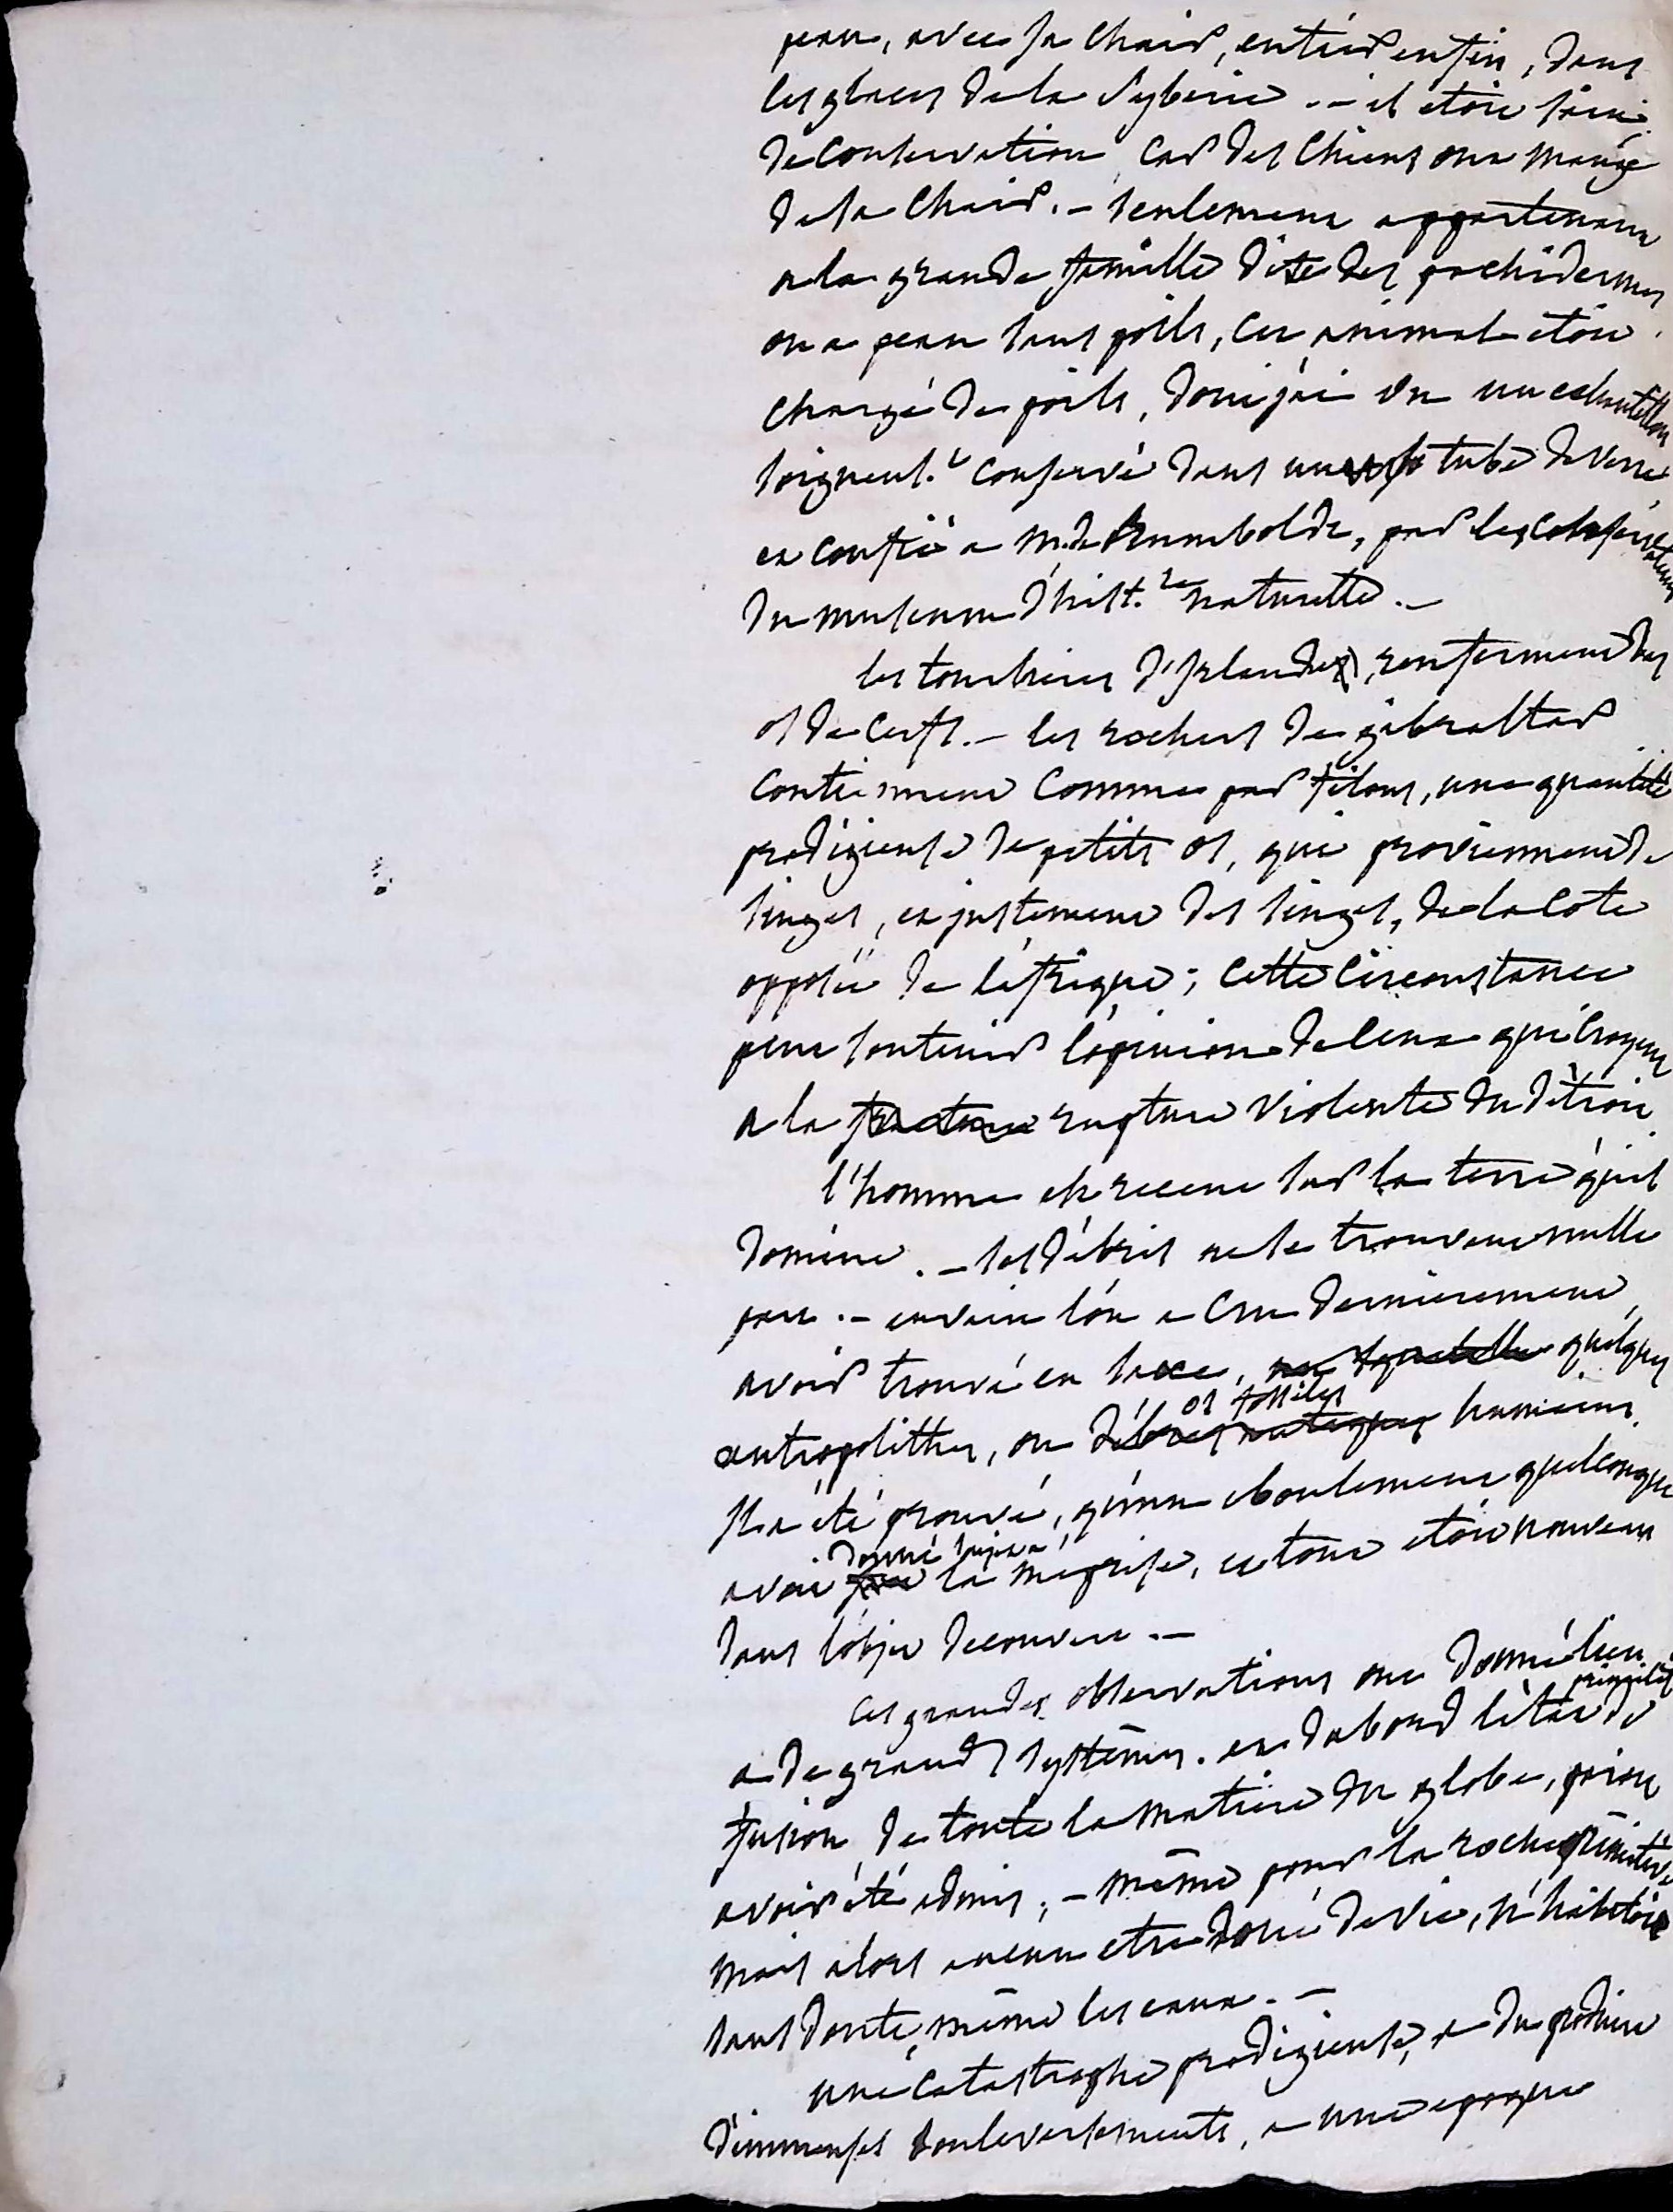 peau, avec sa chair, entier enfin, dans
les glaces de la Syberie. - il etoit
de conservation, car des chiens ont mangé
de sa chair. - seulement appartenant
a la grande famille dite des pachidermes
ou a peau sans poils, cet animal etoit
chargé de poils, dont j'ai vu un echantillon
soigneus.t conservé dans un tube de verre
et confié a M. de Humboldt, par les conservateurs
du museum d'hist.re naturelle. -
les tourbieres d'Irlande, renferment des
os de cerfs. - les rochers de gibraltar
contiennent comme par filons, une quantité
prodigieuse de petits os, qui proviennent de
singes, et justement des singes, de la cote
opposée de l'afrique; cette circonstance
peut soutenir l'opinion de ceux qui croyent
a la fracture rupture violente du détroit.
l'homme est recent sur la terre qu'il
domine. - ses débris ne se trouvent nulle
part. - en vain l'on a cru dernierement,
avoir trouvé en saxe, quelques
antropolithes, ou débris os fossiles humains.
Il a été prouvé, qu'un eboulement quelconque
avoit donné sujet a la meprise, et tout etoit nouveau
dans l'objet decouvert. -
ces grandes observations ont donné lieu
a de grands systêmes. et d'abord l'état primitif de
fusion de toute la matiere du globe, paroit
avoir été admis, - même pour la roche primitive
mais alors aucun etre doué de vie, n'habitoit
sans doute, même les eaux. -
une catastrophe prodigieuse, a du produire
d'immenses boulversements, a une epoque